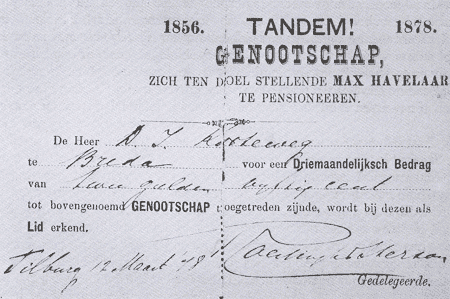 1856. TANDEM! 1878.
GENOOTSCHAP,
ZICH TEN DOEL STELLENDE MAX HAVELAAR
TE PENSIONEEREN.
De Heer D. J. Korteweg
te Breda voor een Driemaandelijksch Bedrag
van twee gulden vyftig cent
tot bovengenoemd GENOOTSCHAP toegetreden zijnde, wordt bij dezen als
Lid erkend.
Tilburg 12 Maart 78
Gedelegeerde.